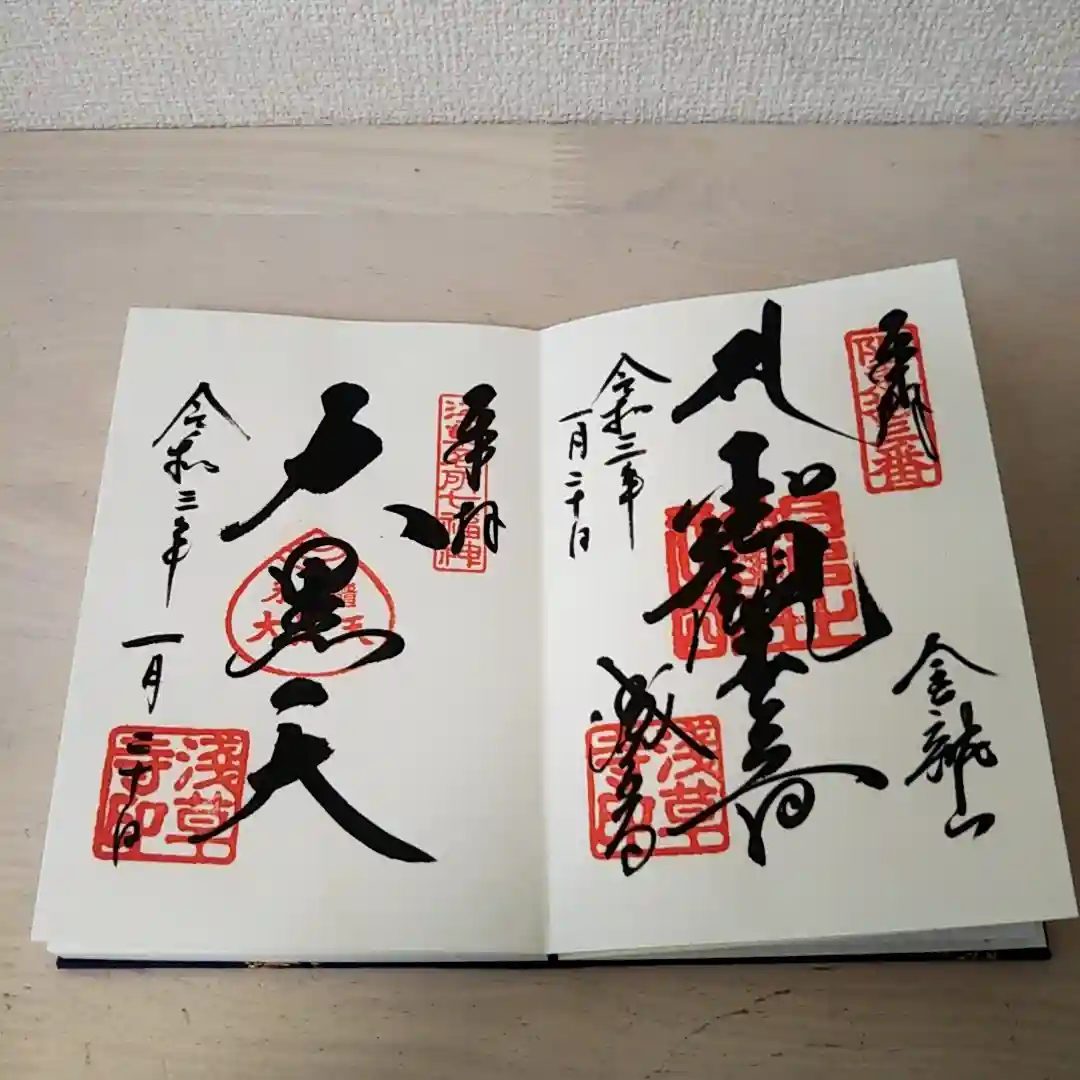 奉拝
坂東拾三番
金龍山
聖観世音
令和三年
一月二十日
淺草寺印
奉拝
浅草名所七福神
大黒天
令和三年
一月
二十日
淺草寺印